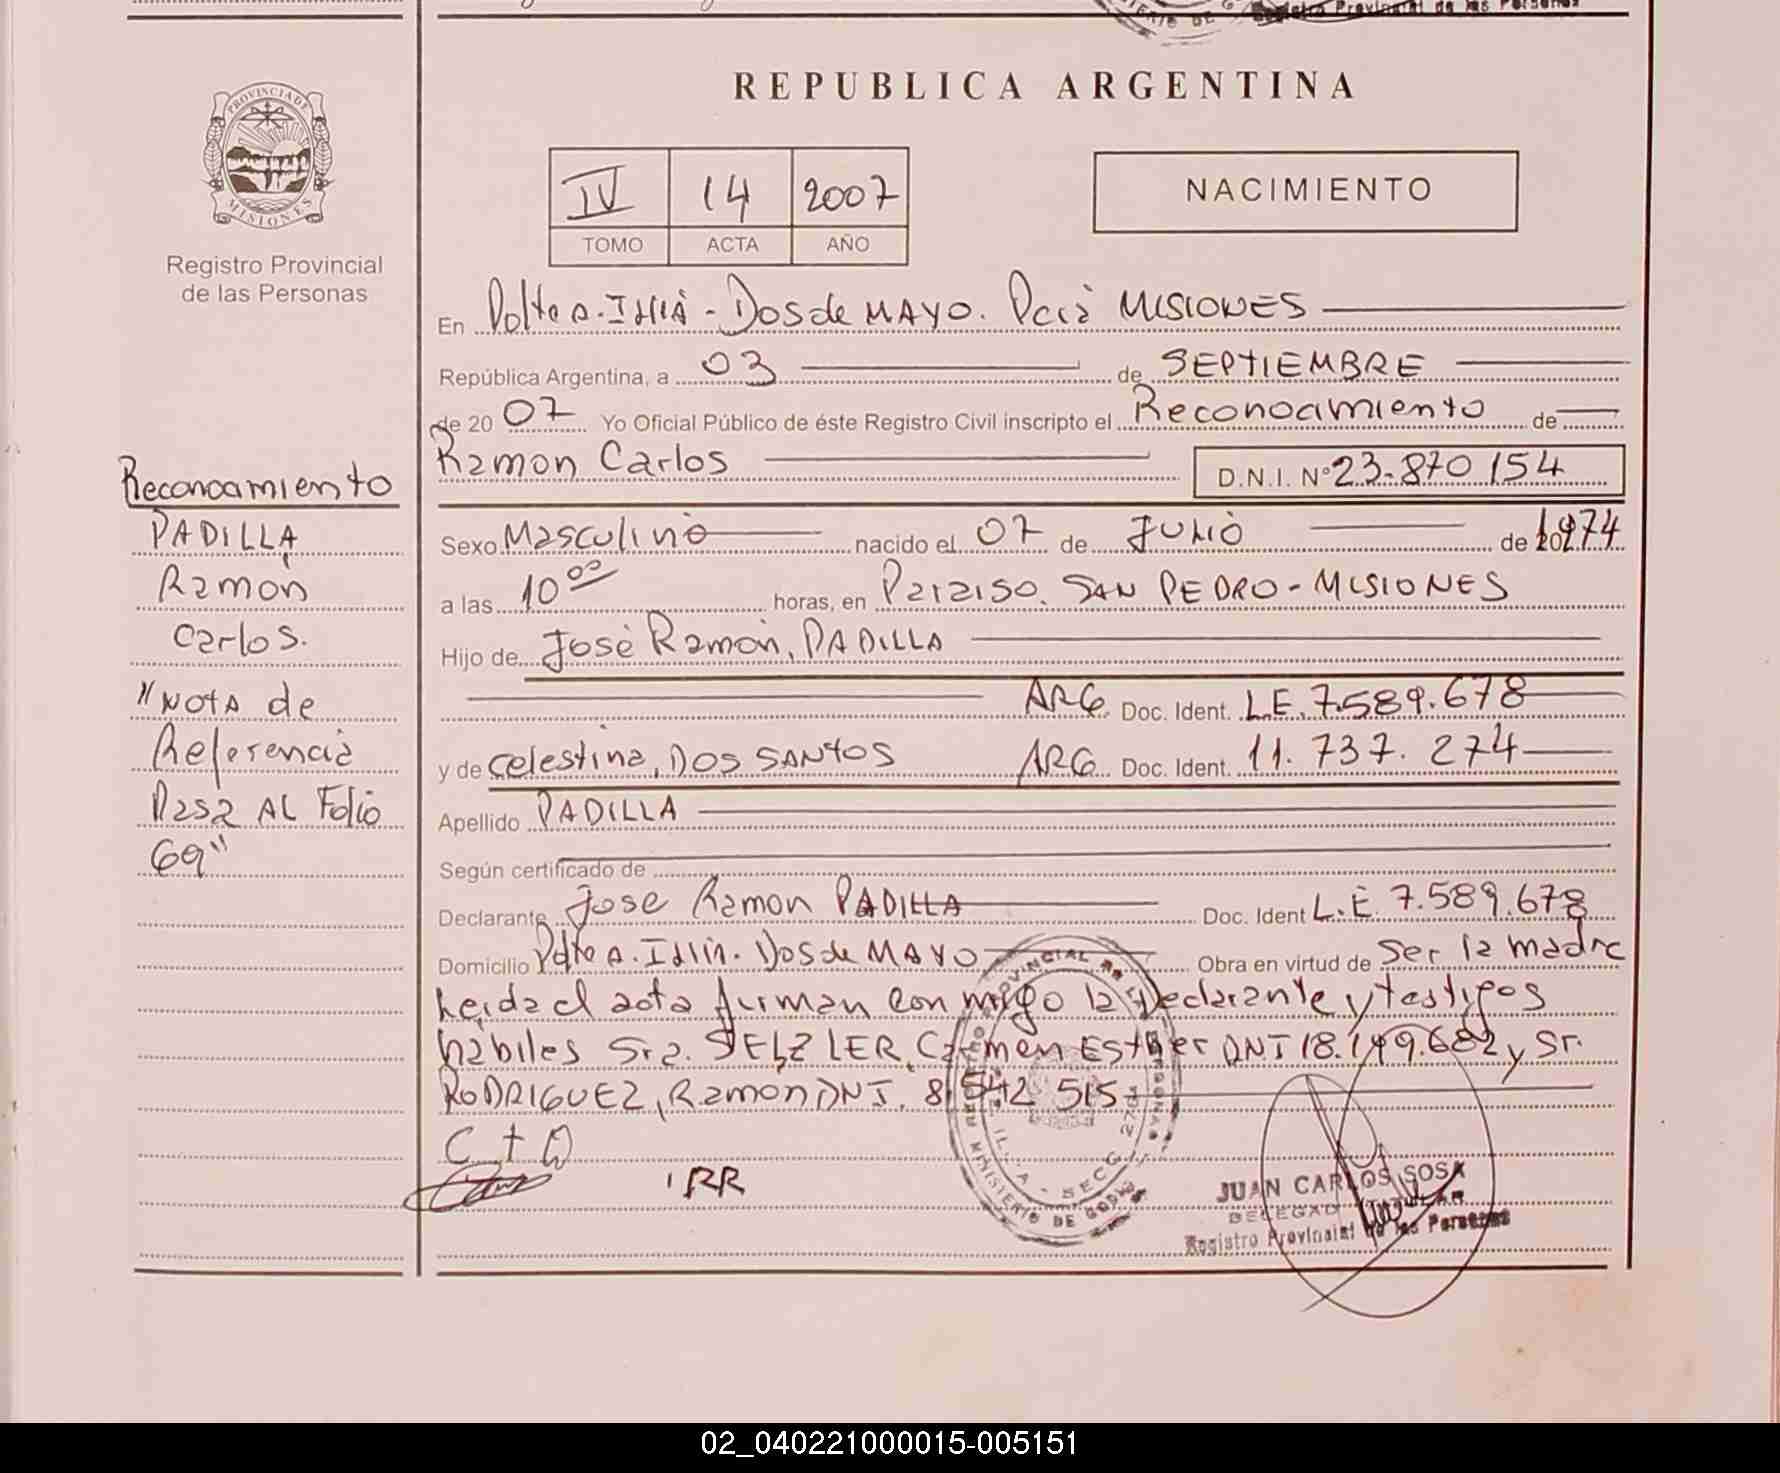 REPUBLICA ARGENTINA
PROVINCIA DE
MISIONES
Registro Provincial
de las Personas
IV 14 2007
TOMO ACTA AÑO
NACIMIENTO
En Pdte A. Illiá - Dos de MAYO. Pcia MISIONES
República Argentina, a 03 de SEPTIEMBRE
de 2007 Yo Oficial Público de éste Registro Civil inscripto el Reconocimiento de
Ramon Carlos D.N.I. Nº 23.870.154
Reconocimiento
PADILLA
Ramon
Carlos.
"NOTA de
Referencia
Pasa AL Folio
69"
Sexo Masculino nacido el 07 de JULIO de 1974
a las 10 00 horas, en Paraiso. SAN PEDRO - MISIONES
Hijo de José Ramón, PADILLA
ARG. Doc. Ident. L.E. 7.589.678
y de Celestina, DOS SANTOS ARG. Doc. Ident. 11.737.274
Apellido PADILLA
Según certificado de
Declarante Jose Ramon PADILLA Doc. Ident L.E. 7.589.678
Domicilio Pdte A. Illia. Dos de MAYO Obra en virtud de Ser la madre
Leida el acta firman con migo la Declarante y testigos
habiles Sra. SELZLER, Carmen Esther DNI 18.149.682 y Sr.
RODRIGUEZ, Ramon DNI. 8.542.515
RR
JUAN CARLOS SOSA
DELEGADO TITULAR
Registro Provincial de las Personas
MINISTERIO DE
02_040221000015-005151